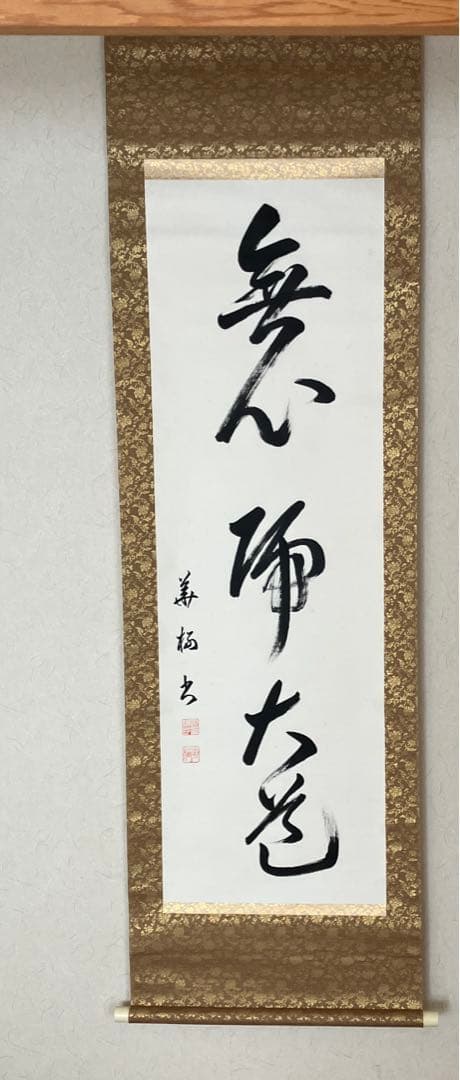 無心帰大道
華
書